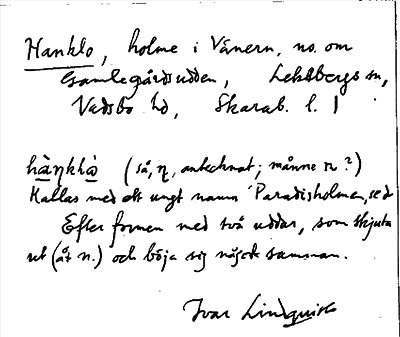 Hanklo, holme i Vänern, no. om
Gamlegårdsudden, Leksbergs sn,
Vadsbo hd, Skarab. l.
hàŋklȧ̀ (så, ŋ, antecknat; månne n?)
Kallas med ett ungt namn Paradisholmen, se d
Efter formen med två uddar, som skjuta
ut (åt n.) och böja sig något samman.
Ivar Lindquist